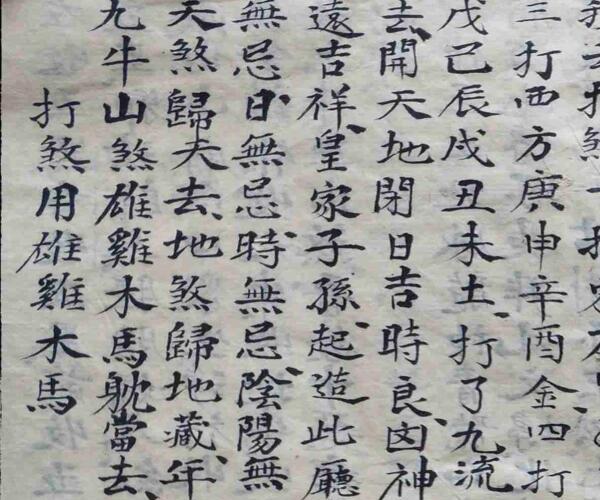 三打西方庚申辛酉金、四打
戊己辰戌丑未土、打了九流
去、開天地閉日吉時良、凶神
遠吉祥、皇家子孫、起造此廳
無忌、日無忌、時無忌、陰陽無
天煞歸天去、地煞歸地藏、年
九牛山煞雄雞木馬躭當去、
打煞用雄雞木馬